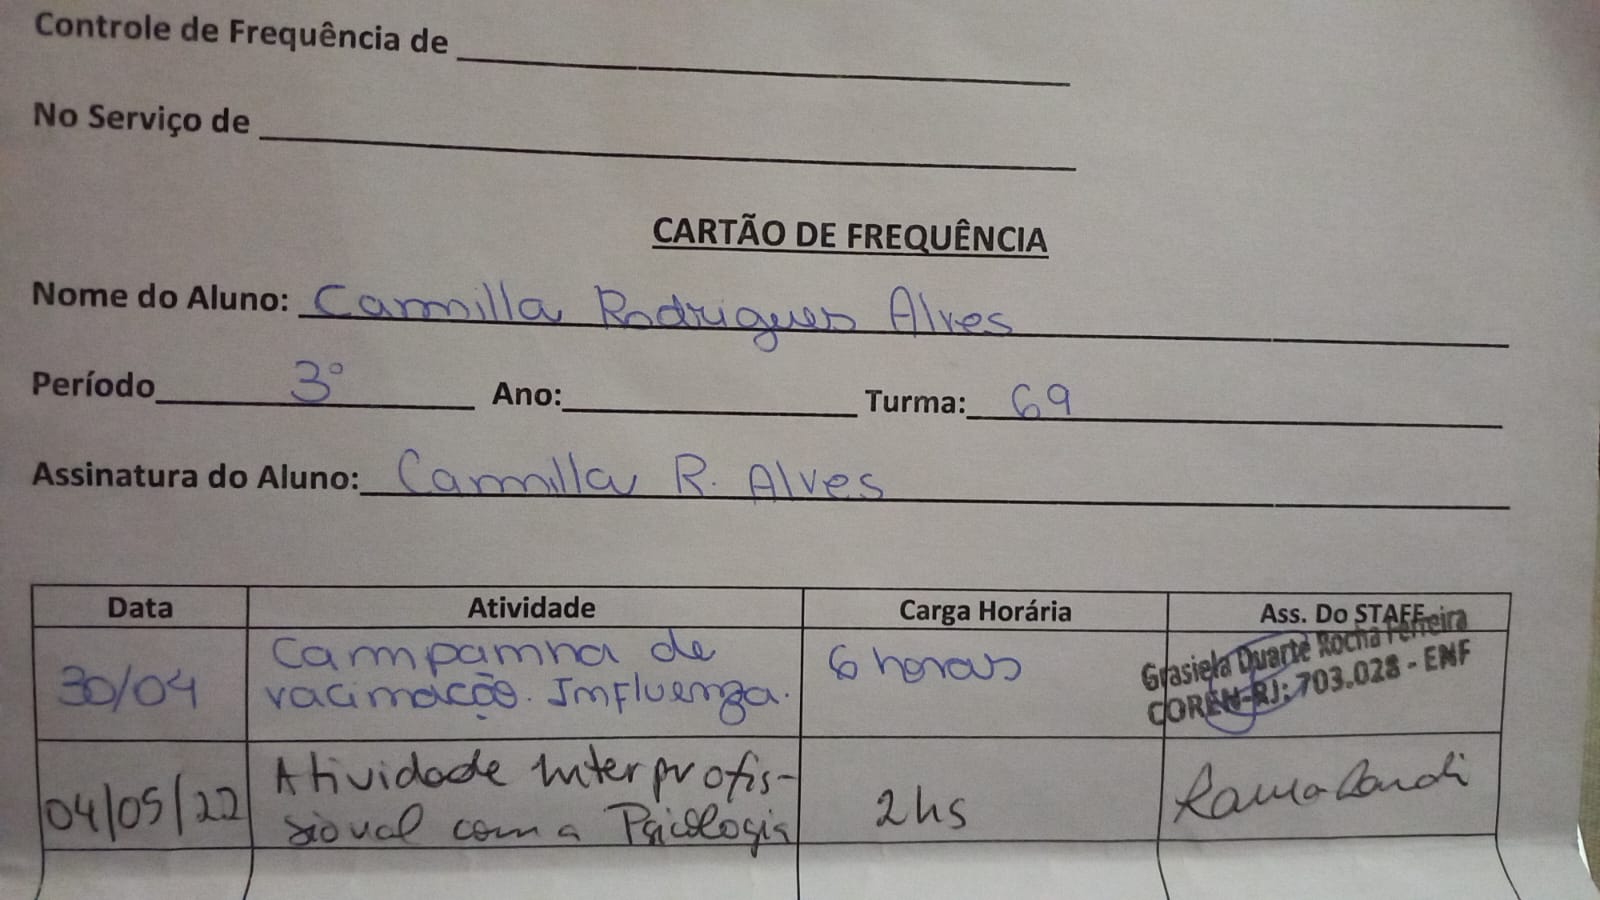 Controle de Frequência de
No Serviço de
CARTÃO DE FREQUÊNCIA
Nome do Aluno: Camilla Rodrigues Alves
Período 3° Ano: Turma: 69
Assinatura do Aluno: Camilla R. Alves
Data Atividade Carga Horária Ass. Do STAFF
30/04 Campanha de vacinação. Influenza. 6 horas Grasiela Duarte Rocha Ferreira
COREN-RJ: 703.028 - ENF
04/05/22 Atividade Interprofis-
sional com a Psicologia 2hs